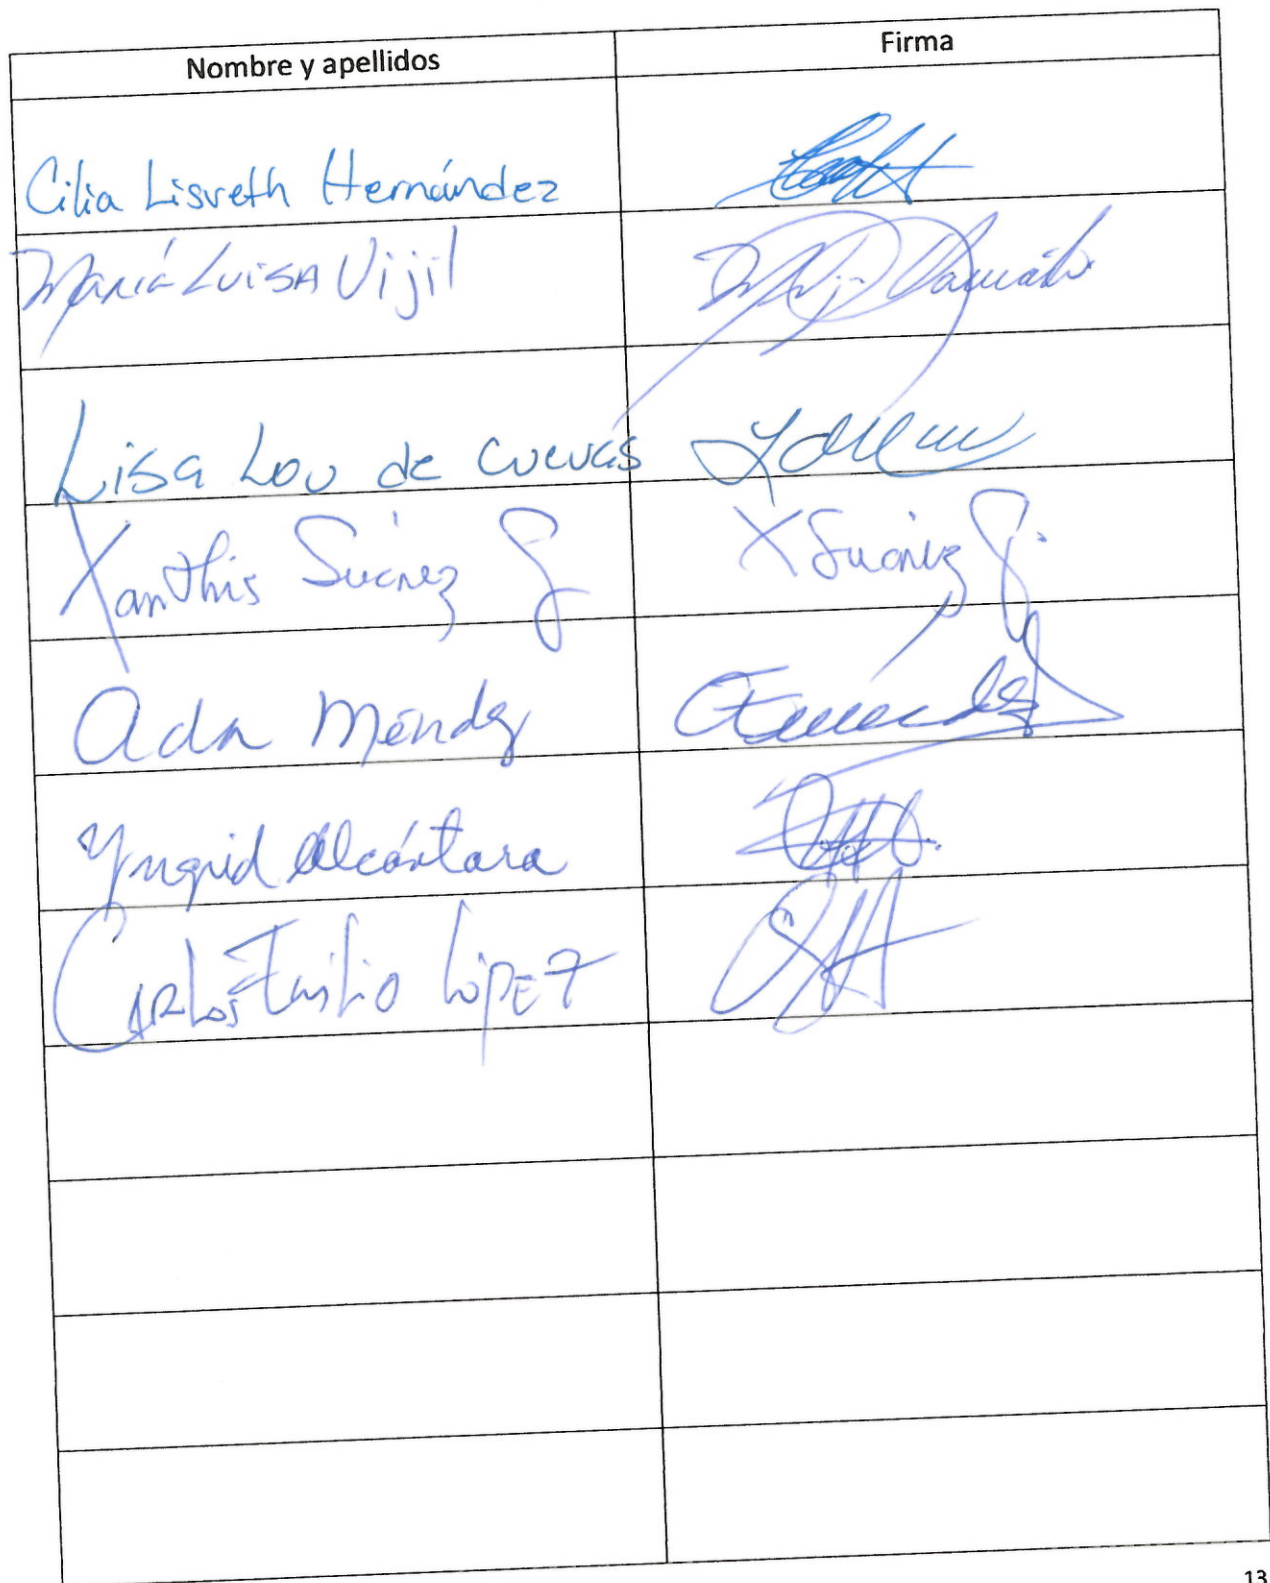 Nombre y apellidos Firma
Cilia Lisveth Hernández
María Luisa Vijil
Lisa Lou de Cuevas
Xanthis Suárez G X Suárez G.
Ada Méndez
Yngrid Alcántara
Carlos Emilio López
13